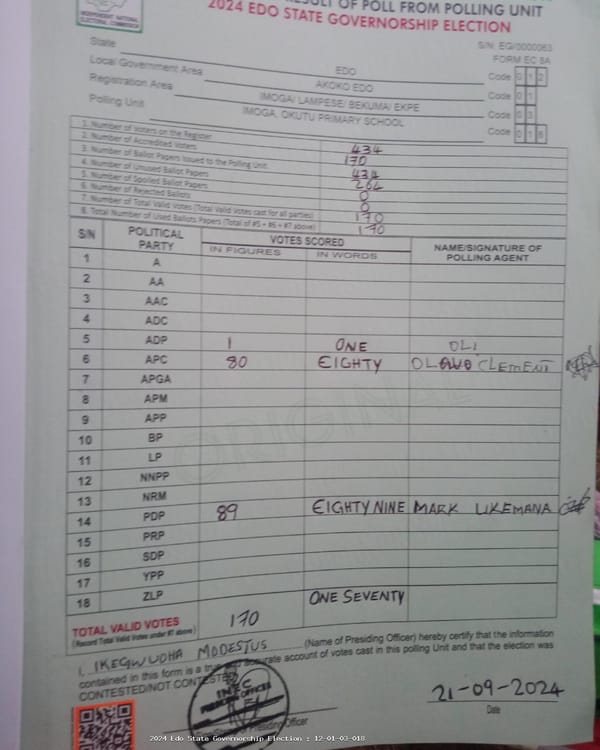 INDEPENDENT NATIONAL
ELECTORAL COMMISSION
RESULT OF POLL FROM POLLING UNIT
2024 EDO STATE GOVERNORSHIP ELECTION
S/N: EG/0000063
FORM EC 8A
State EDO Code 0 1 2
Local Government Area AKOKO EDO Code 0 1
Registration Area IMOGA/ LAMPESE/ BEKUMA/ EKPE Code 0 3
Polling Unit IMOGA, OKUTU PRIMARY SCHOOL Code 0 1 8
1. Number of Voters on the Register 434
2. Number of Accredited Voters 170
3. Number of Ballot Papers Issued to the Polling Unit 434
4. Number of Unused Ballot Papers 264
5. Number of Spoiled Ballot Papers 0
6. Number of Rejected Ballots 0
7. Number of Total Valid Votes (Total Valid Votes cast for all parties) 170
8. Total Number of Used Ballots Papers (Total of #5 + #6 + #7 above) 170
S/N POLITICAL PARTY VOTES SCORED NAME/SIGNATURE OF POLLING AGENT
IN FIGURES IN WORDS
1 A
2 AA
3 AAC
4 ADC
5 ADP 1 ONE OLI
6 APC 80 EIGHTY CLEMENT
7 APGA
8 APM
9 APP
10 BP
11 LP
12 NNPP
13 NRM
14 PDP 89 EIGHTY NINE MARK LIKEMANA
15 PRP
16 SDP
17 YPP
18 ZLP
ORIGINAL
TOTAL VALID VOTES 170 ONE SEVENTY
(Record Total Valid Votes under #7 above)
I, IKEGWUOHA MODESTUS (Name of Presiding Officer) hereby certify that the information
contained in this form is a true and accurate account of votes cast in this polling Unit and that the election was
CONTESTED/NOT CONTESTED
INEC
PRESIDING OFFICER
21-09-2024
Presiding Officer
Date
2024 Edo State Governorship Election : 12-01-03-018